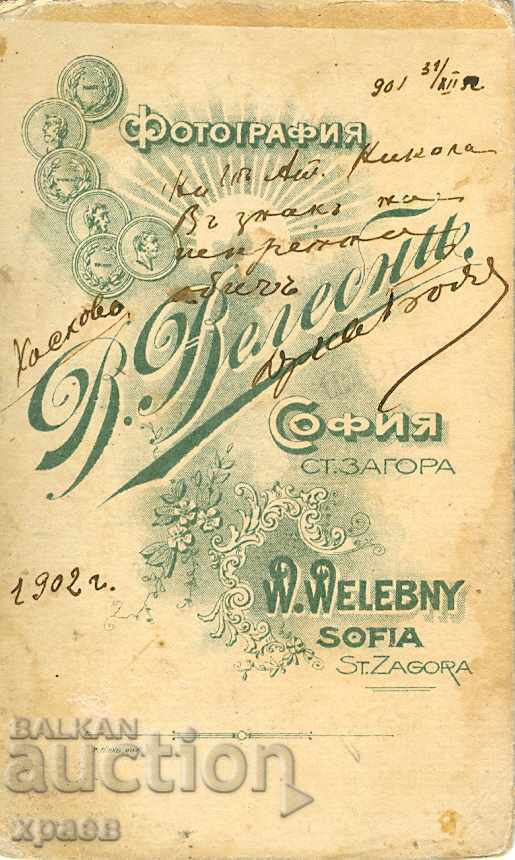 901 31/XII
Фотография
Ат. Никола
Въ знакъ на
обичъ
Хасково.
В. Велебни.
София
Ст. Загора
1902 г.
W. Welebny
Sofia
St. Zagora
BALKAN
auction
храев